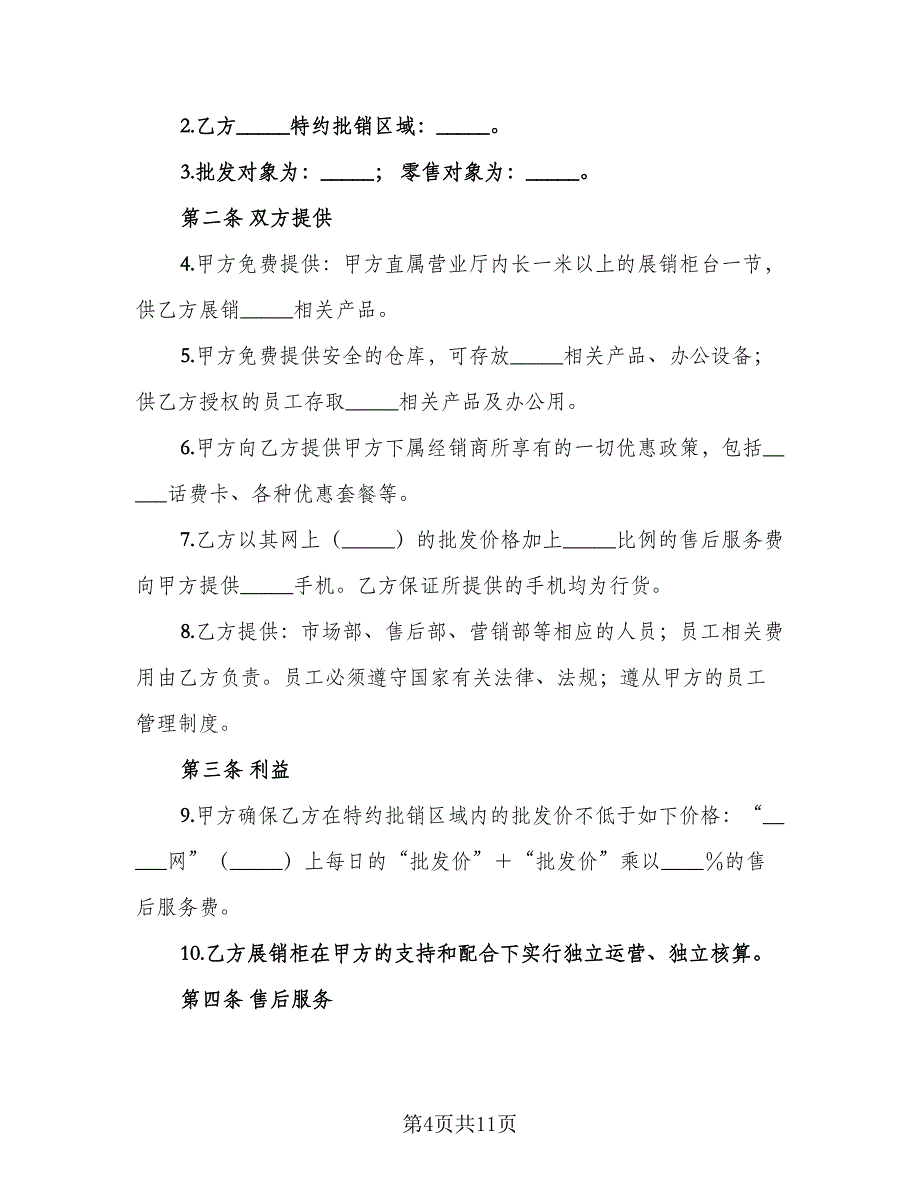 2.乙方_____特约批销区域：_____。
3.批发对象为：_____； 零售对象为：_____。
第二条 双方提供
4.甲方免费提供：甲方直属营业厅内长一米以上的展销柜台一节，
供乙方展销_____相关产品。
5.甲方免费提供安全的仓库，可存放_____相关产品、办公设备；
供乙方授权的员工存取_____相关产品及办公用。
6.甲方向乙方提供甲方下属经销商所享有的一切优惠政策，包括__
___话费卡、各种优惠套餐等。
7.乙方以其网上（_____）的批发价格加上_____比例的售后服务费
向甲方提供_____手机。乙方保证所提供的手机均为行货。
8.乙方提供：市场部、售后部、营销部等相应的人员；员工相关费
用由乙方负责。员工必须遵守国家有关法律、法规；遵从甲方的员工
管理制度。
第三条 利益
9.甲方确保乙方在特约批销区域内的批发价不低于如下价格：“__
___网”（_____）上每日的“批发价”＋“批发价”乘以____%的售
后服务费。
10.乙方展销柜在甲方的支持和配合下实行独立运营、独立核算。
第四条 售后服务
第4页共11页